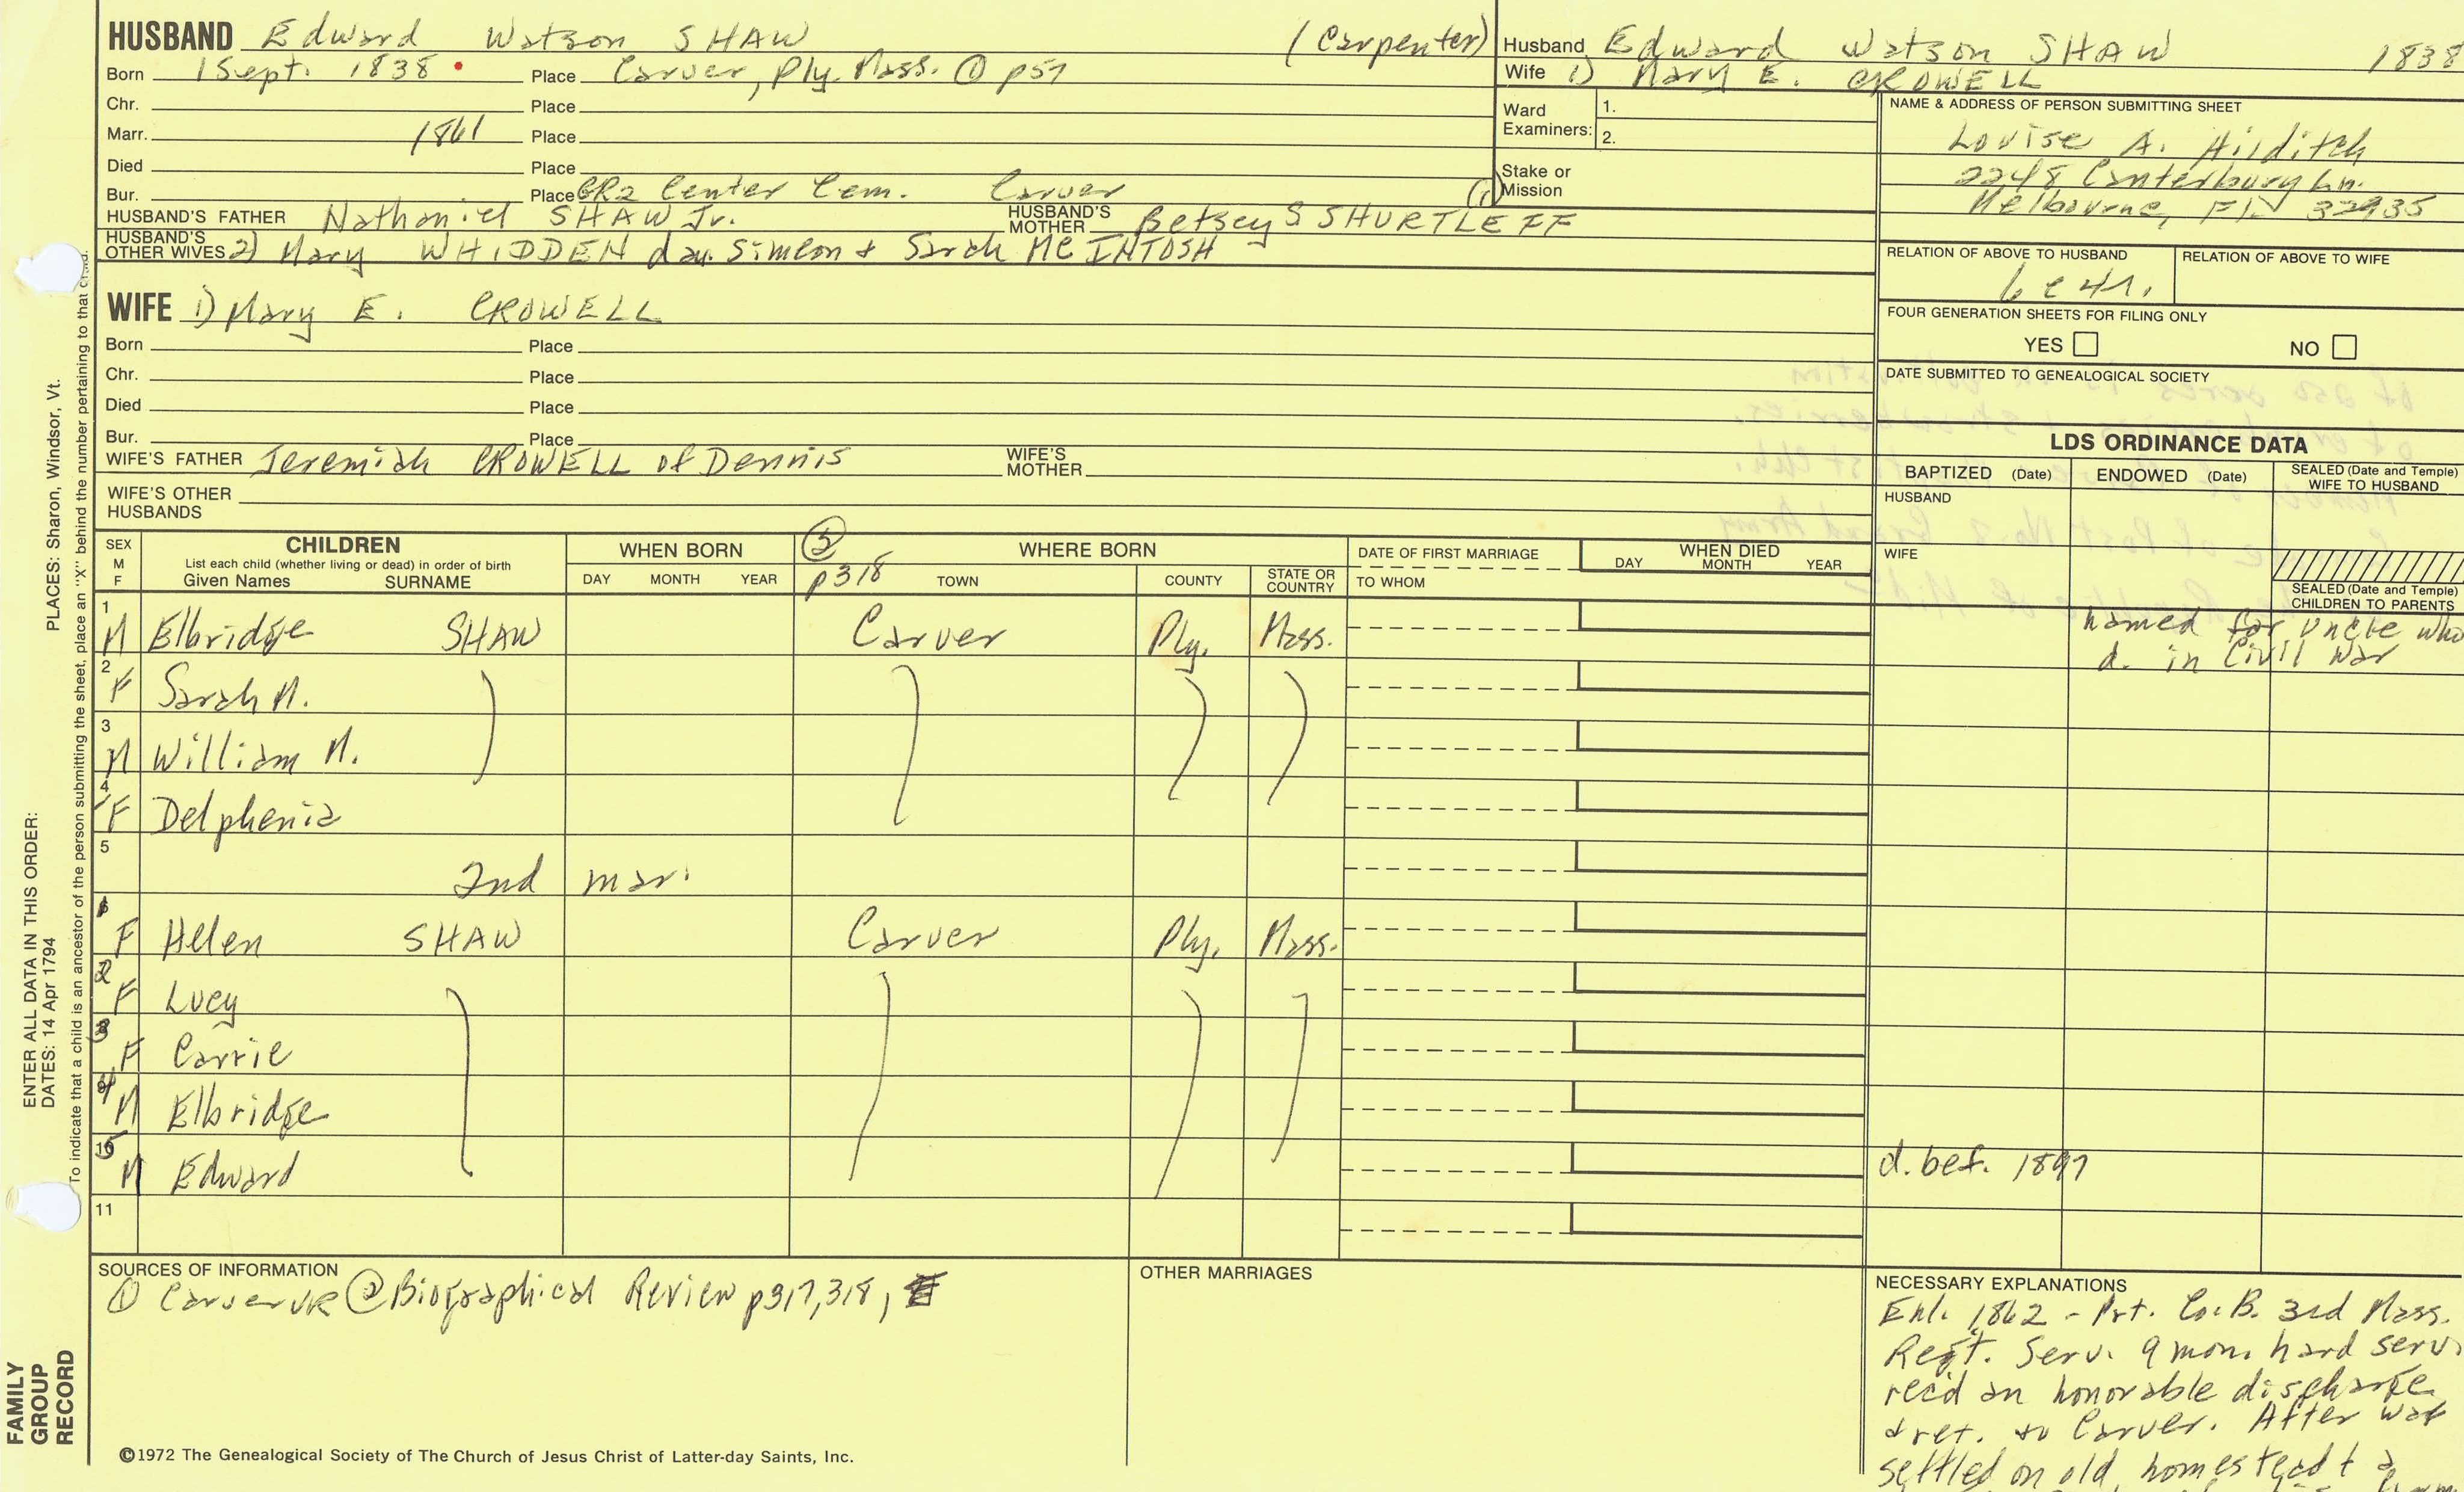 HUSBAND Edward Watson SHAW (Carpenter)
Born 1 Sept. 1838 Place Carver, Ply. Mass. ① p57
Chr. Place
Marr. 1861 Place
Died Place
Bur. Place GR2 Center Cem. Carver
HUSBAND'S FATHER Nathaniel SHAW Jr. HUSBAND'S MOTHER Betsey S SHURTLEFF
HUSBAND'S OTHER WIVES 2) Mary WHIDDEN dau. Simeon + Sarah MC INTOSH
WIFE 1) Mary E. CROWELL
Born Place
Chr. Place
Died Place
Bur. Place
WIFE'S FATHER Jeremiah CROWELL of Dennis WIFE'S MOTHER
WIFE'S OTHER HUSBANDS
Husband Edward Watson SHAW 1838
Wife 1) Mary E. CROWELL
Ward Examiners: 1.
2.
Stake or Mission
NAME & ADDRESS OF PERSON SUBMITTING SHEET
Louise A. Hilditch
2248 Canterbury Ln.
Melbourne, FL 32935
RELATION OF ABOVE TO HUSBAND RELATION OF ABOVE TO WIFE
FOUR GENERATION SHEETS FOR FILING ONLY
YES NO
DATE SUBMITTED TO GENEALOGICAL SOCIETY
LDS ORDINANCE DATA
BAPTIZED (Date) ENDOWED (Date) SEALED (Date and Temple) WIFE TO HUSBAND
HUSBAND
WIFE
SEALED (Date and Temple) CHILDREN TO PARENTS
SEX M F CHILDREN List each child (whether living or dead) in order of birth Given Names SURNAME
WHEN BORN DAY MONTH YEAR
② p318 WHERE BORN TOWN COUNTY STATE OR COUNTRY
DATE OF FIRST MARRIAGE TO WHOM
WHEN DIED DAY MONTH YEAR
1 M Elbridge SHAW Carver Ply. Mass. named for uncle who
d. in Civil War
2 F Sarah M.
3 M William M.
4 F Delphenia
5
2nd mar.
1 F Helen SHAW Carver Ply. Mass.
2 F Lucy
3 F Carrie
4 M Elbridge
5 M Edward d. bef. 1897
11
SOURCES OF INFORMATION
① Carver VR ② Biographical Review p317, 318,
OTHER MARRIAGES
NECESSARY EXPLANATIONS
Enl. 1862 - Prt. Co. B. 3rd Mass.
Regt. Serv. 9 mon. hard serv.
rec'd an honorable discharge
+ ret. to Carver. After war
settled on old homestead +
©1972 The Genealogical Society of The Church of Jesus Christ of Latter-day Saints, Inc.
ENTER ALL DATA IN THIS ORDER:
DATES: 14 Apr 1794
PLACES: Sharon, Windsor, Vt.
To indicate that a child is an ancestor of the person submitting the sheet, place an "X" behind the number pertaining to that child.
FAMILY
GROUP
RECORD